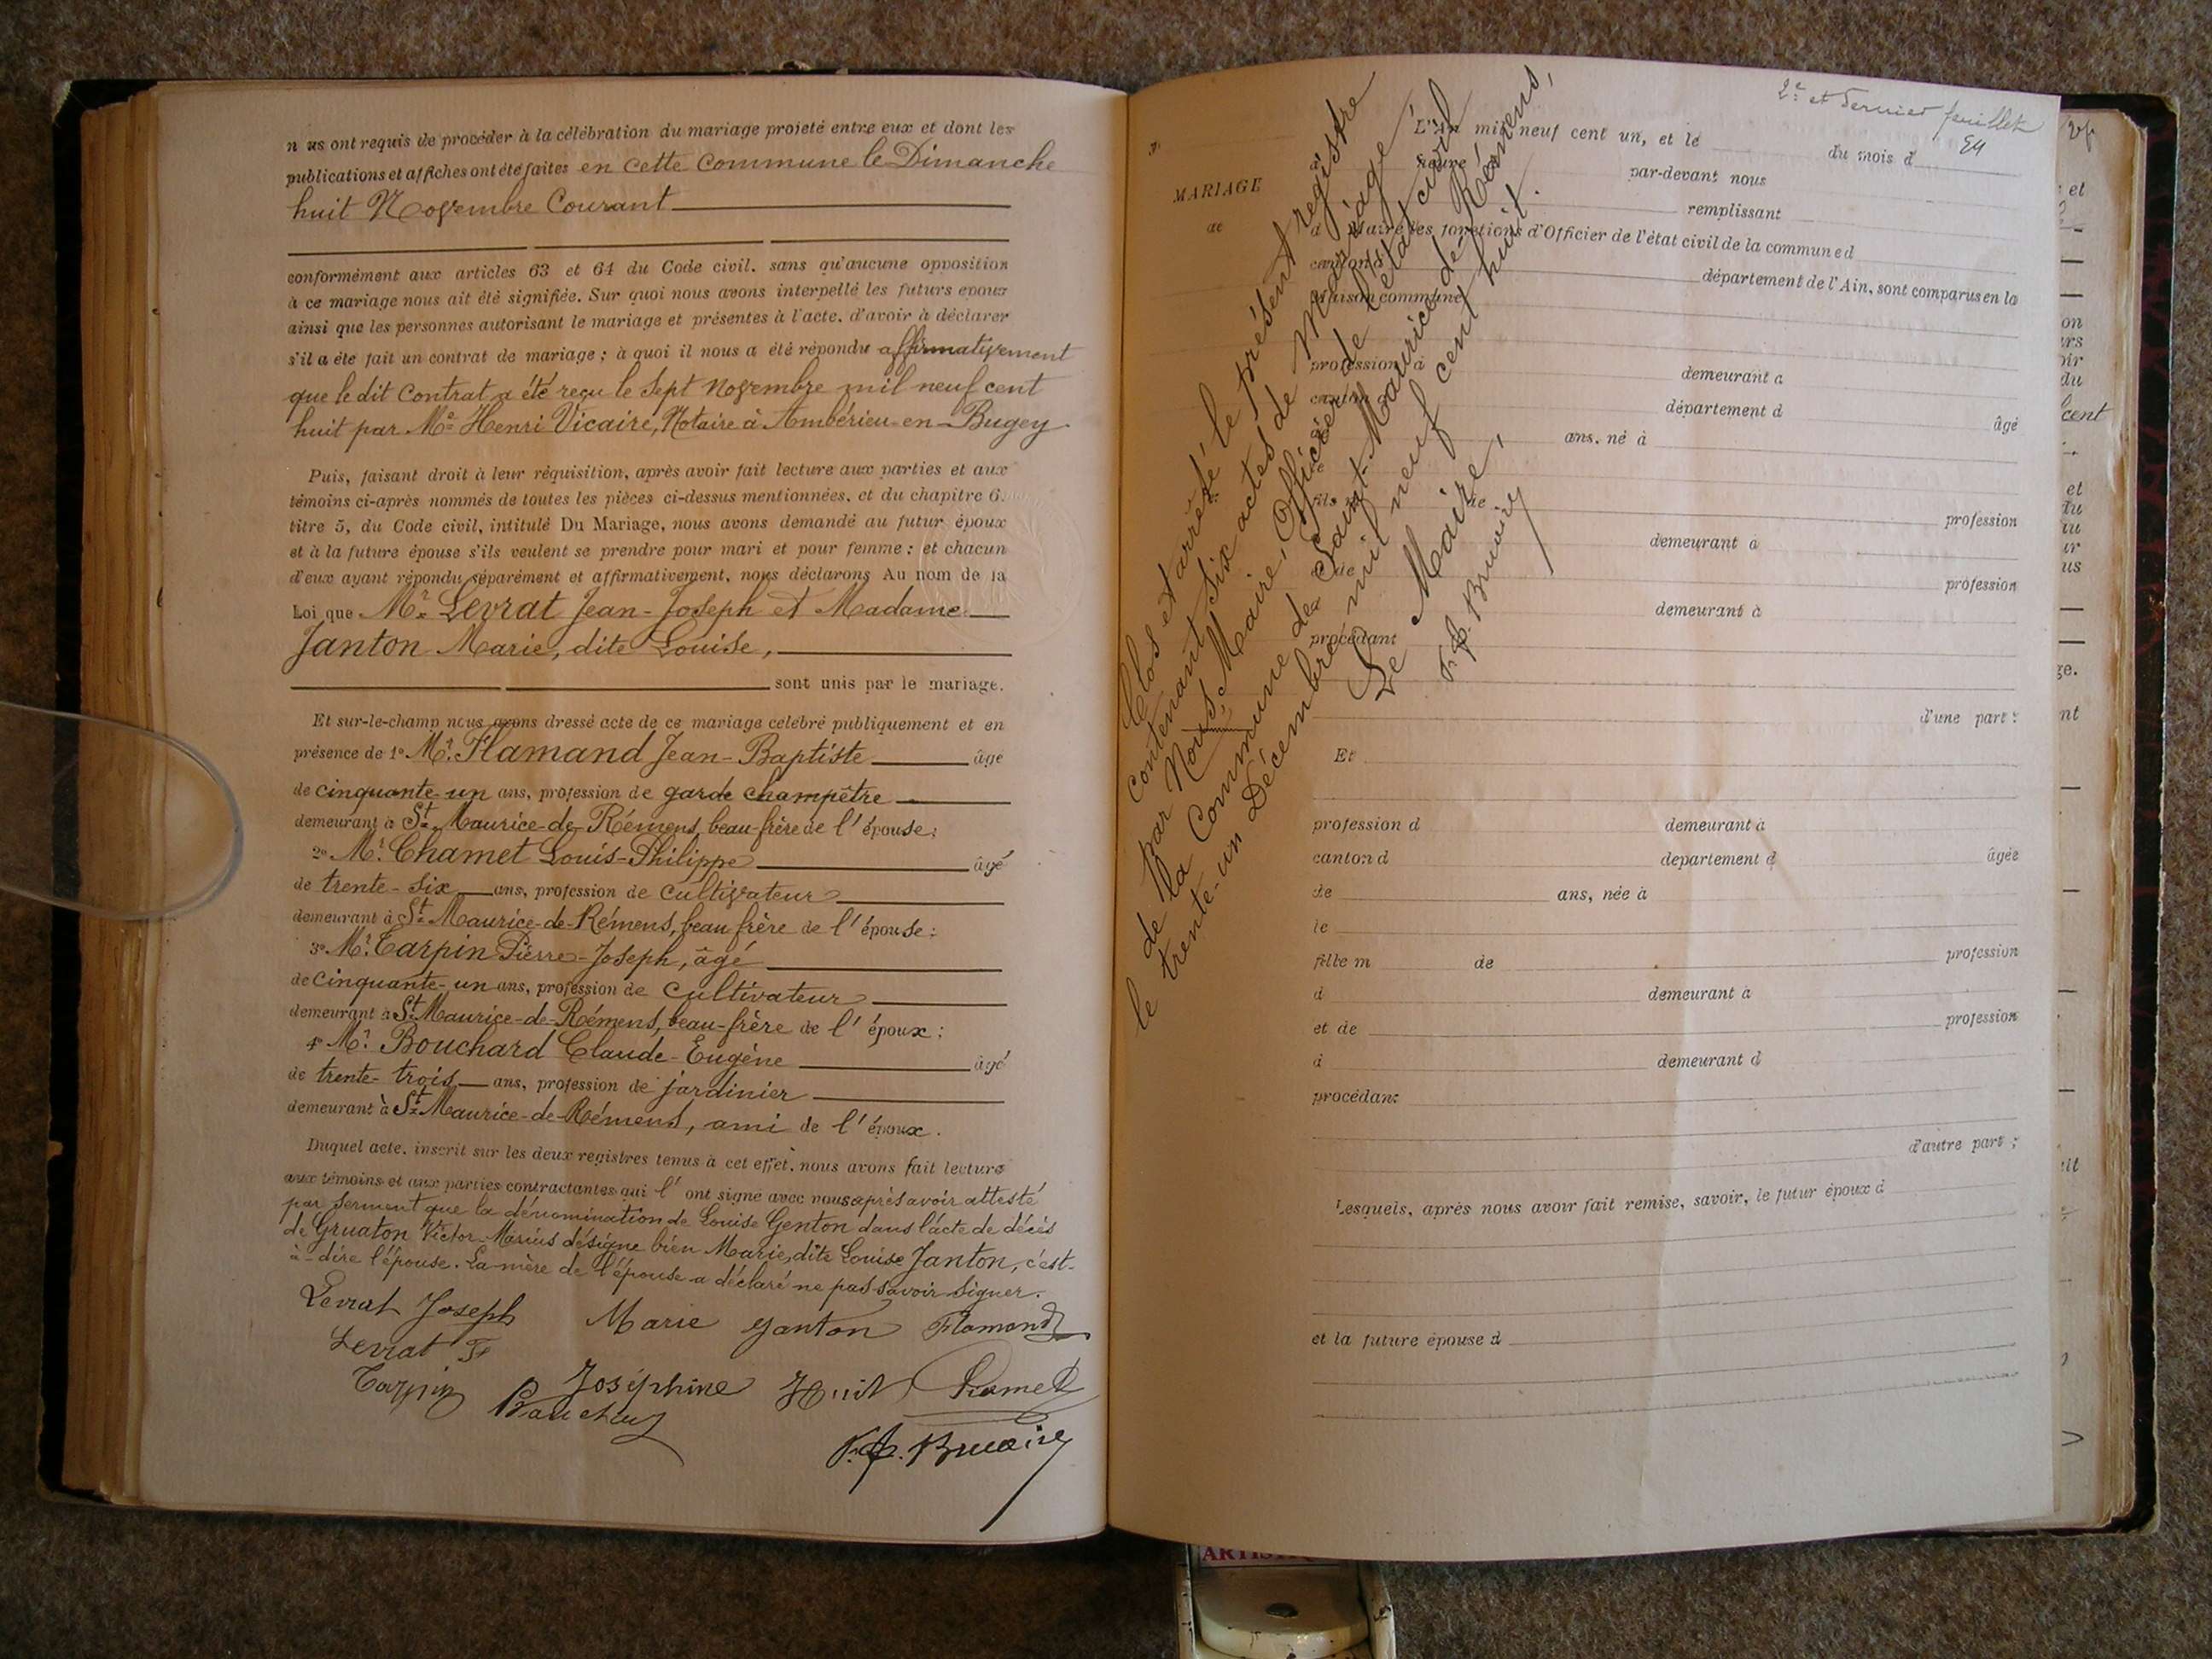 nous ont requis de procéder à la célébration du mariage projeté entre eux et dont les
publications et affiches ont été faites en cette commune le Dimanche
huit Novembre Courant
conformément aux articles 63 et 64 du Code civil, sans qu'aucune opposition
à ce mariage nous ait été signifiée. Sur quoi nous avons interpellé les futurs epoux
ainsi que les personnes autorisant le mariage et présentes à l'acte, d'avoir à déclarer
s'il a été fait un contrat de mariage ; à quoi il nous a été répondu affirmativement
que le dit Contrat a été reçu le sept Novembre mil neuf cent
huit par Me Henri Vicaire, Notaire à Ambérieu-en-Bugey.
Puis, faisant droit à leur réquisition, après avoir fait lecture aux parties et aux
témoins ci-après nommés de toutes les pièces ci-dessus mentionnées, et du chapitre 6.
titre 5, du Code civil, intitulé Du Mariage, nous avons demandé au futur époux
et à la future épouse s'ils veulent se prendre pour mari et pour femme : et chacun
d'eux ayant répondu séparément et affirmativement, nous déclarons Au nom de la
Loi que Mr Levrat Jean-Joseph et Madame
Janton Marie, dite Louise,
sont unis par le mariage.
Et sur-le-champ nous avons dressé acte de ce mariage célébré publiquement et en
présence de 1o Mr. Flamand Jean-Baptiste âgé
de cinquante-un ans, profession de garde champêtre
demeurant à St Maurice-de-Rémens, beau-frère de l'épouse ;
2o Mr. Chamet Louis-Philippe âgé
de trente-six ans, profession de cultivateur
demeurant à St Maurice-de-Rémens, beau frère de l'épouse ;
3o Mr. Tarpin Pierre-Joseph, âgé
de cinquante-un ans, profession de cultivateur
demeurant à St Maurice-de-Rémens, beau-frère de l'époux ;
4o Mr. Bouchard Claude-Eugène âgé
de trente-trois ans, profession de jardinier
demeurant à St Maurice-de-Rémens, ami de l'époux.
Duquel acte, inscrit sur les deux registres tenus à cet effet, nous avons fait lecture
aux témoins et aux parties contractantes qui l'ont signé avec nous après avoir attesté
par serment que la dénomination de Louise Genton dans l'acte de décès
de Gruaton Victor-Marius désigne bien Marie, dite Louise Janton, c'est-
à-dire l'épouse. La mère de l'épouse a déclaré ne pas savoir signer.
Levrat Joseph Marie Janton Flamand
Levrat F
Tarpin Joséphine Chamet
Bouchard
Bruaire
2e et dernier feuillet
54
MARIAGE
de
L'an mil neuf cent un, et le du mois d
heure par-devant nous
remplissant
d Maire les fonctions d'Officier de l'état civil de la commune d
canton d département de l'Ain, sont comparus en la
maison commune
profession d demeurant à
canton département d âgé
ans, né à
le
fils de profession
demeurant à
et de profession
demeurant à
procédant
d'une part ;
Et
profession d demeurant à
canton d departement d âgée
de ans, née à
le
fille m de profession
d demeurant à
et de profession
d demeurant d
procédant
d'autre part ;
Lesquels, après nous avoir fait remise, savoir, le futur époux d
et la future épouse d
Clos et arrêté le présent registre
contenant Six actes de Mariage
par Nous, Maire, Officier de l'état civil
de la Commune de Saint-Maurice-de-Rémens,
le trente-un Décembre mil neuf cent huit.
Le Maire,
Bruaire